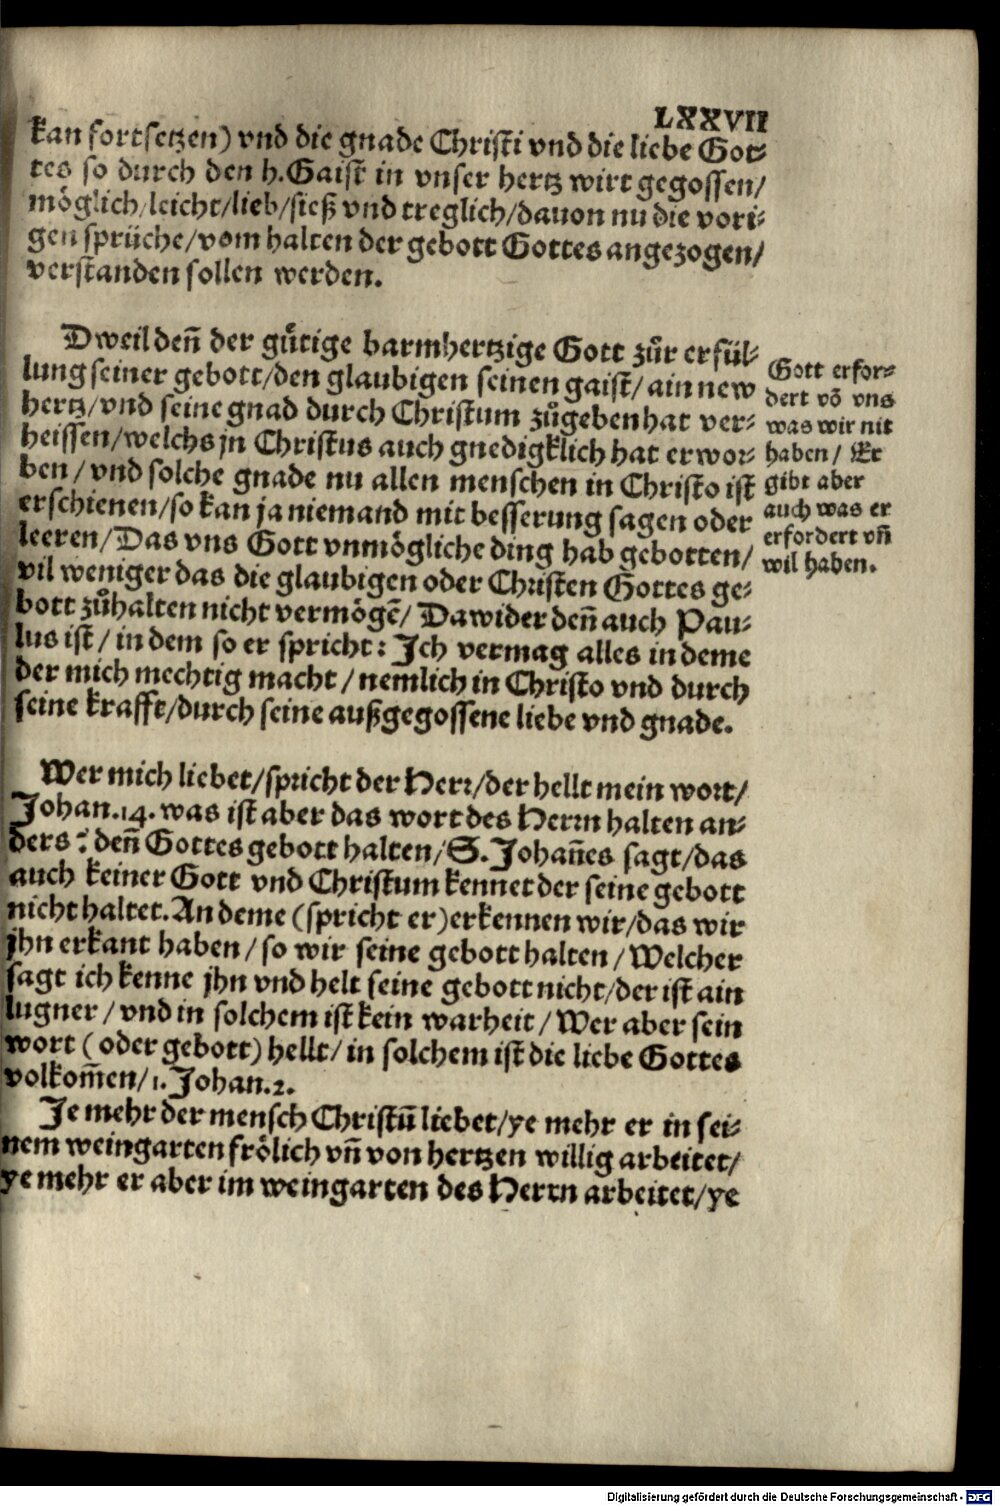 LXXVII
kan fortsetzen) vnd die gnade Christi vnd die liebe Got⸗
tes so durch den h. Gaist in vnser hertz wirt gegossen/
möglich/leicht/lieb/sieß vnd treglich/dauon nu die vori⸗
gen sprüche/vom halten der gebott Gottes angezogen/
verstanden sollen werden.
Dweil deñ der gůtige barmhertzige Gott zůr erfül⸗
lung seiner gebott/den glaubigen seinen gaist/ain new
hertz/vnd seine gnad durch Christum zůgeben hat ver⸗
heissen/welchs jn Christus auch gnedigklich hat erwor⸗
ben/vnd solche gnade nu allen menschen in Christo ist
erschienen/so kan ja niemand mit besserung sagen oder
leeren/Das vns Gott vnmögliche ding hab gebotten/
vil weniger das die glaubigen oder Christen Gottes ge⸗
bott zůhalten nicht vermögē/Dawider deñ auch Pau⸗
lus ist/in dem so er spricht: Ich vermag alles in deme
der mich mechtig macht/nemlich in Christo vnd durch
seine krafft/durch seine außgegossene liebe vnd gnade.
Gott erfor⸗
dert võ vns
was wir nit
haben/Er
gibt aber
auch was er
erfordert vñ
wil haben.
Wer mich liebet/spricht der Herr/der hellt mein wort/
Johan.14. was ist aber das wort des Herrn halten an⸗
ders? deñ Gottes gebott halten/S. Johañes sagt/das
auch keiner Gott vnd Christum kennet der seine gebott
nicht haltet. An deme (spricht er) erkennen wir/das wir
jhn erkant haben/so wir seine gebott halten/Welcher
sagt ich kenne jhn vnd helt seine gebott nicht/der ist ain
lugner/vnd in solchem ist kein warheit/Wer aber sein
wort (oder gebott) hellt/in solchem ist die liebe Gottes
volkom̄en/1. Johan.2.
Je mehr der mensch Christū liebet/ye mehr er in sei⸗
nem weingarten frölich vñ von hertzen willig arbeitet/
ye mehr er aber im weingarten des Herrn arbeitet/ye
Digitalisierung gefördert durch die Deutsche Forschungsgemeinschaft - DFG